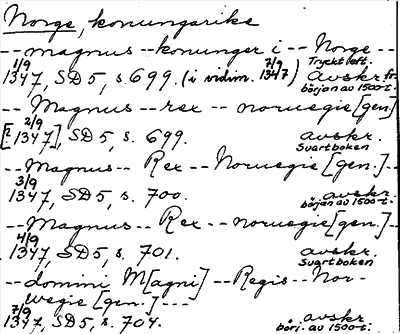 Norge, konungarike
-- magnus -- konunger i -- Norge --
1/9 1347, SD 5, s. 699. (i vidim. 7/9 1347) Tryckt eft. Avskr. fr. början av 1500-t.
-- Magnus -- rex -- noruegie [gen.]
[? 2/9 1347], SD 5, s. 699. avskr. Svartboken
-- Magnus -- Rex -- Noruegie [gen.] --
3/9 1347, SD 5, s. 700. avskr. början av 1500-t.
-- Magnus -- Rex -- noruegie [gen.] --
4/9 1347, SD 5, s. 701. avskr. Svartboken
-- domini M[agni] -- Regis -- Nor-
wegie [gen.] --
7/9 1347, SD 5, s. 704. avskr. börj. av 1500-t.